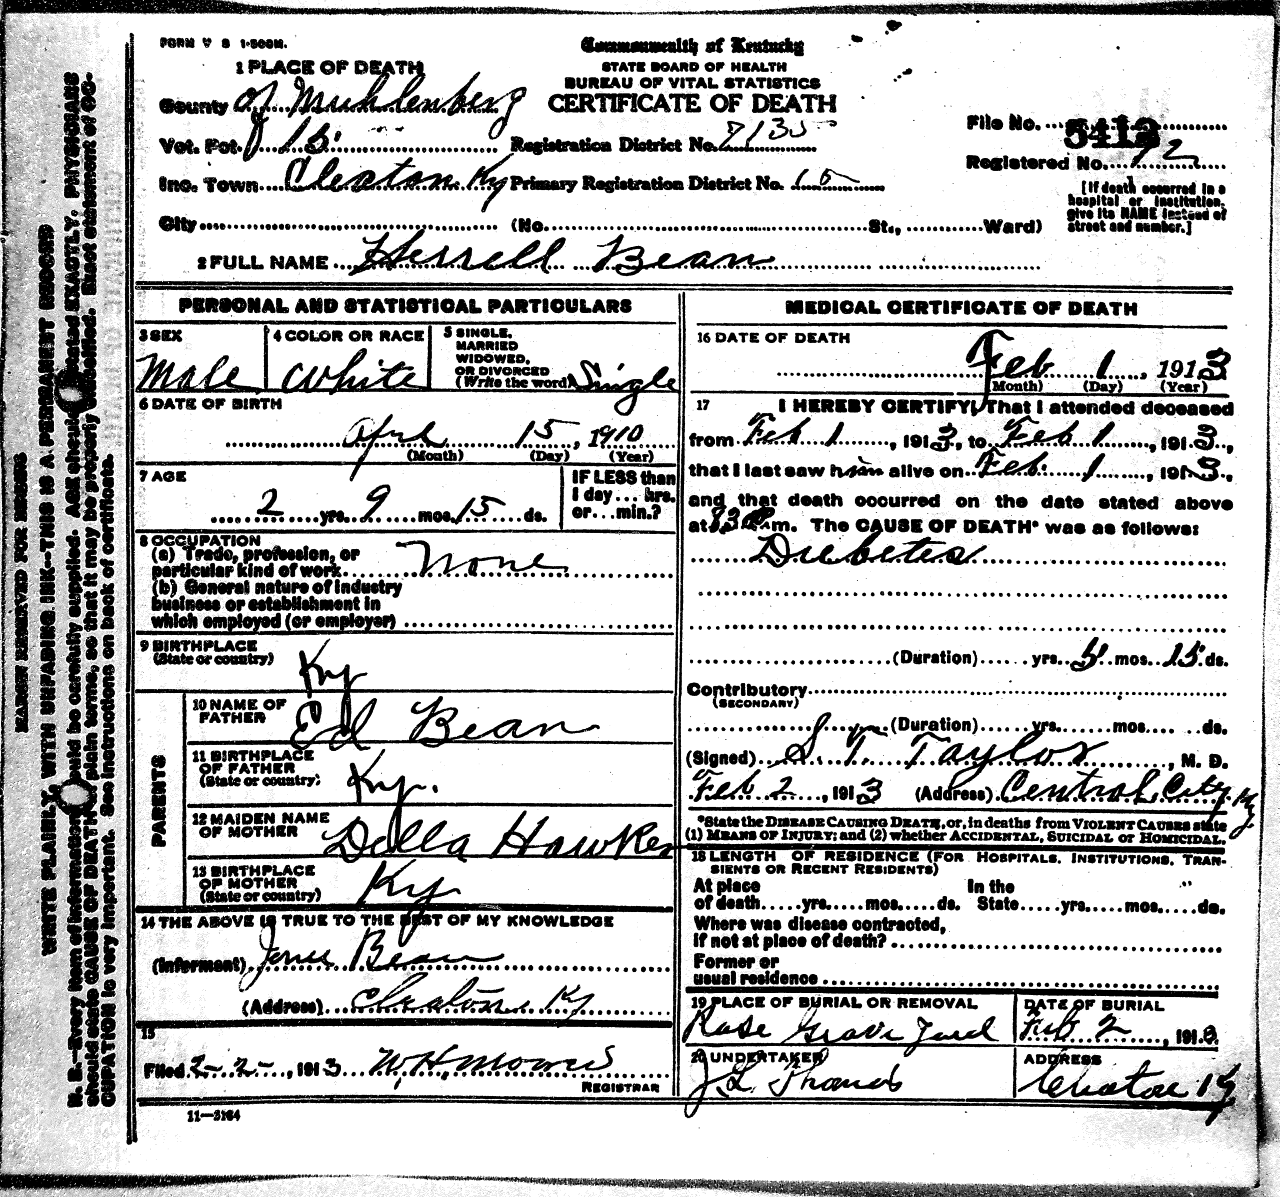 FORM V S 1-500M.
Commonwealth of Kentucky
STATE BOARD OF HEALTH
BUREAU OF VITAL STATISTICS
CERTIFICATE OF DEATH
1 PLACE OF DEATH
County of Muhlenberg
Vot. Pct 15 Registration District No. 7135
Inc. Town Cleaton Ky Primary Registration District No. 15
City (No. St., Ward)
File No. 5412
Registered No. 72
[If death occurred in a
hospital or institution,
give its NAME instead of
street and number.]
2 FULL NAME Herrell Bean
PERSONAL AND STATISTICAL PARTICULARS
3 SEX
Male
4 COLOR OR RACE
White
5 SINGLE,
MARRIED
WIDOWED,
OR DIVORCED
(Write the word) Single
6 DATE OF BIRTH
April 15, 1910
(Month) (Day) (Year)
7 AGE
2 yrs. 9 mos. 15 ds.
IF LESS than
1 day... hrs.
or... min.?
8 OCCUPATION
(a) Trade, profession, or
particular kind of work None
(b) General nature of industry
business or establishment in
which employed (or employer)
9 BIRTHPLACE
(State or country)
Ky
PARENTS
10 NAME OF
FATHER
Ed Bean
11 BIRTHPLACE
OF FATHER
(State or country)
Ky.
12 MAIDEN NAME
OF MOTHER
Della Hawker
13 BIRTHPLACE
OF MOTHER
(State or country)
Ky
14 THE ABOVE IS TRUE TO THE BEST OF MY KNOWLEDGE
(Informent) Bean
(Address) Cleaton Ky
15
Filed 2-2-, 1913 W. H. Morris
REGISTRAR
11-3164
MEDICAL CERTIFICATE OF DEATH
16 DATE OF DEATH
Feb 1, 1913
(Month) (Day) (Year)
17 I HEREBY CERTIFY, That I attended deceased
from Feb 1, 1913, to Feb 1, 1913,
that I last saw him alive on Feb. 1, 1913,
and that death occurred on the date stated above
at m. The CAUSE OF DEATH* was as follows:
Diebetes
(Duration) yrs. 5 mos. 15 ds.
Contributory
(SECONDARY)
(Duration) yrs. mos. ds.
(Signed) S. T. Taylor, M. D.
Feb 2, 1913 (Address) Central City Ky
*State the DISEASE CAUSING DEATH, or, in deaths from VIOLENT CAUSES state
(1) MEANS OF INJURY; and (2) whether ACCIDENTAL, SUICIDAL or HOMICIDAL.
18 LENGTH OF RESIDENCE (FOR HOSPITALS, INSTITUTIONS, TRAN-
SIENTS OR RECENT RESIDENTS)
At place In the
of death yrs. mos. ds. State yrs. mos. ds.
Where was disease contracted,
If not at place of death?
Former or
usual residence
19 PLACE OF BURIAL OR REMOVAL
Rose Grave Yard
DATE OF BURIAL
Feb 2, 1913
20 UNDERTAKER
J L Thomas
ADDRESS
Cleaton Ky
MARGIN RESERVED FOR BINDING
WRITE PLAINLY, WITH UNFADING INK--THIS IS A PERMANENT RECORD
N. B.--Every item of information should be carefully supplied. AGE should be stated EXACTLY. PHYSICIANS
should state CAUSE OF DEATH in plain terms, so that it may be properly classified. Exact statement of OC-
CUPATION is very important. See instructions on back of certificate.